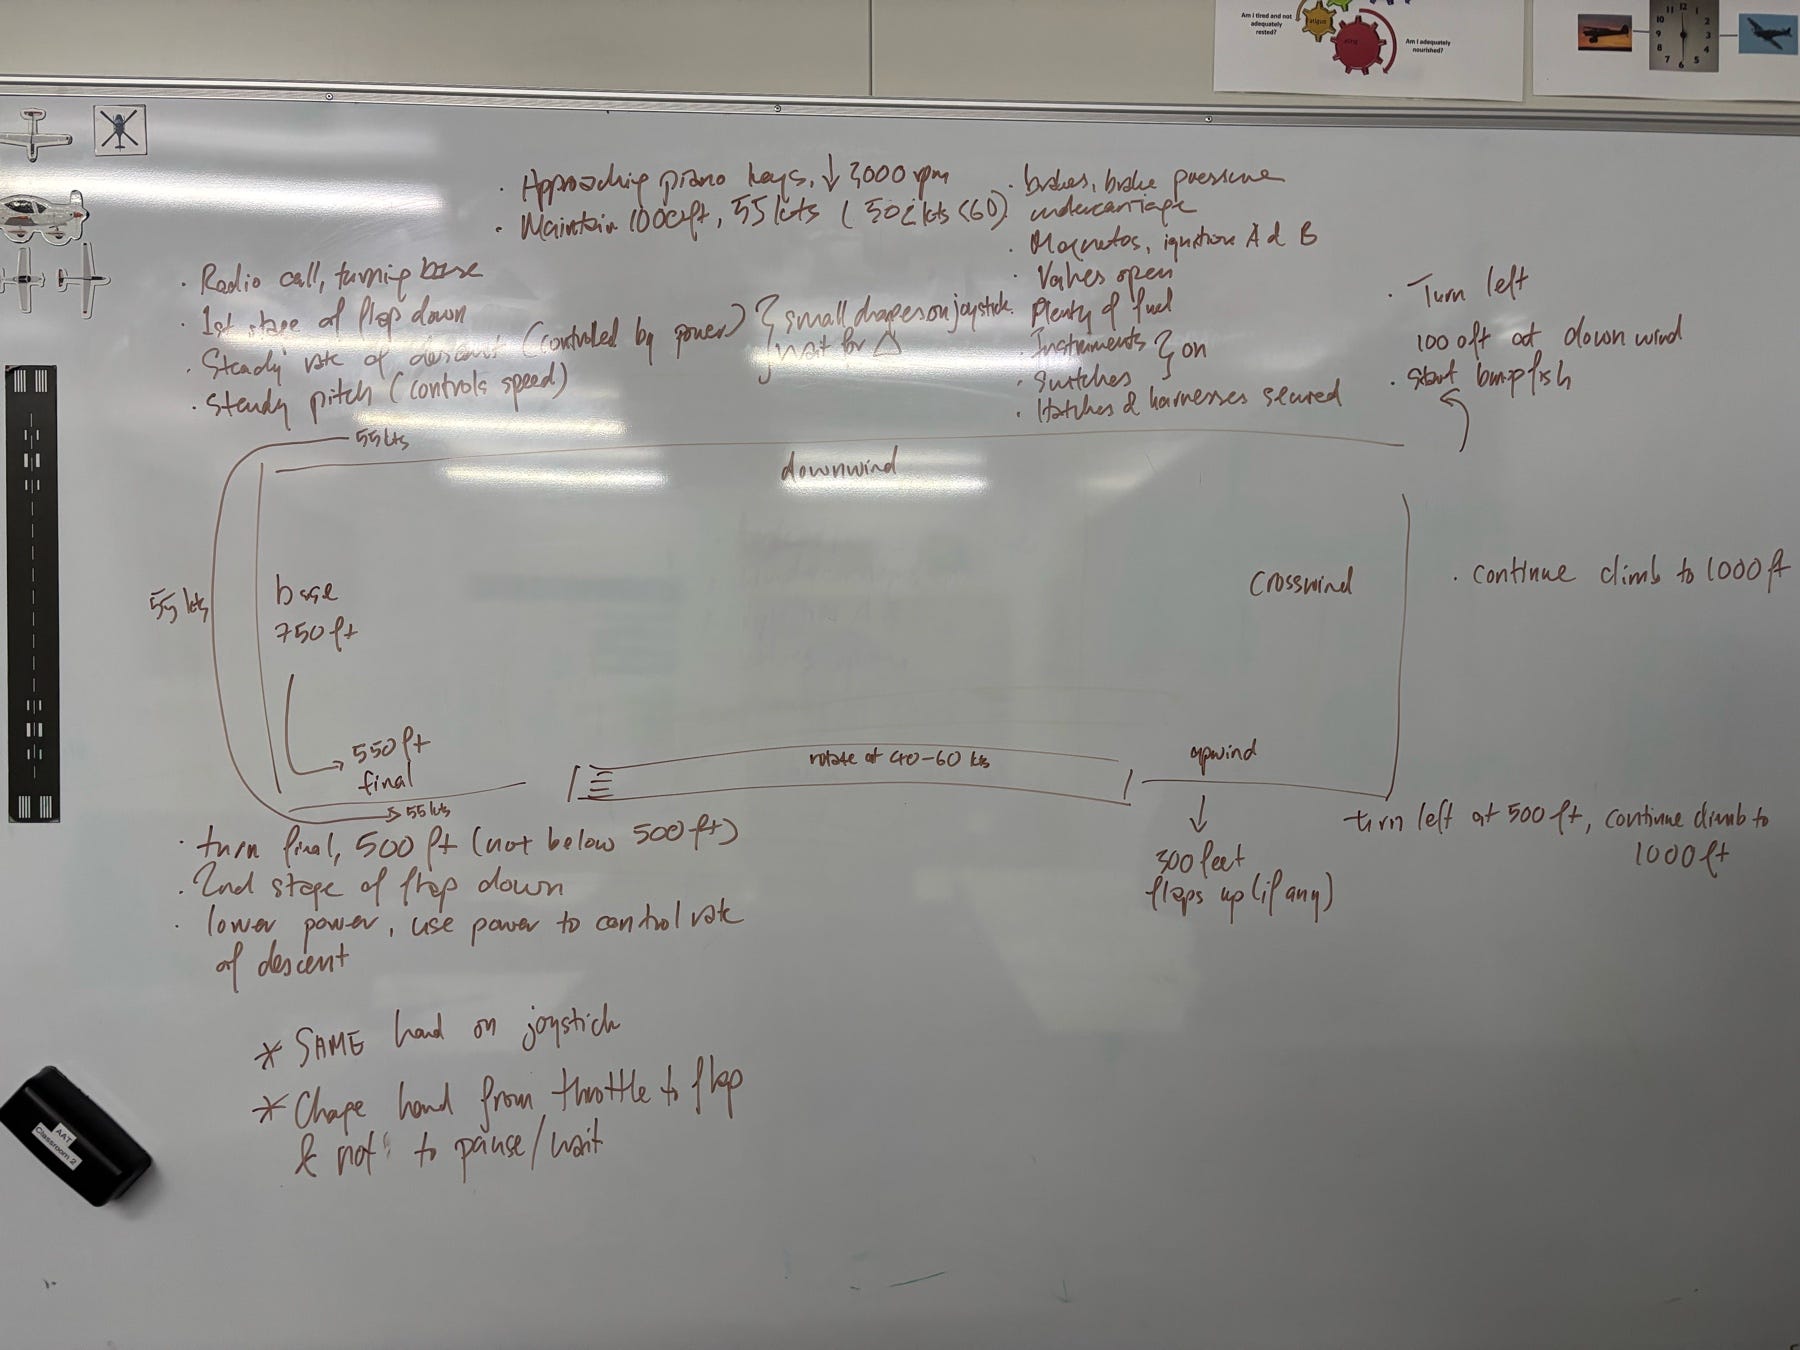 Am I tired and not
adequately
rested?
fatigue
Am I adequately
nourished?
11 12 1
10 2
9 3
8 4
7 6 5
· Approaching piano keys, ↓ 3000 rpm
· Maintain 1000ft, 55 kts (50< kts <60)
· brakes, brake pressure
undercarriage
· Magnetos, ignition A & B
· Valves open
· Plenty of fuel
· Instruments } on
· Switches
· Hatches & harnesses secured
· Radio call, turning base
· 1st stage of flap down
· Steady rate of descent (controlled by power) } { small changes on joystick
wait for △
· Steady pitch (controls speed)
· Turn left
1000ft at downwind
· Start bumpfish
55 kts
downwind
55 kts
base
750 ft
Crosswind
· continue climb to 1000 ft
550 ft
final
→ 55 kts
rotate at 40-60 kts
upwind
↓
300 feet
flaps up (if any)
turn left at 500 ft, continue climb to
1000 ft
· turn final, 500 ft (not below 500 ft)
· 2nd stage of flap down
· lower power, use power to control rate
of descent
* SAME hand on joystick
* Change hand from throttle to flap
& not to pause/wait
AAT
Classroom 2